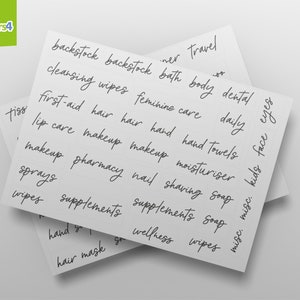 rs4
backstock backstock bath body dental
cleansing wipes feminine care daily
first-aid hair hair hand hand towels
lip care makeup makeup moisturiser
makeup pharmacy nail shaving soap
sprays supplements supplements soap
wipes wellness wipes
misc. misc. kids face eyes
travel
hair mask